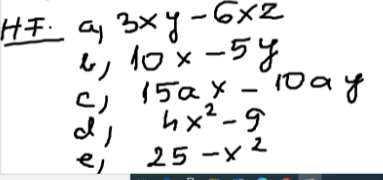 HF. a, 3xy - 6xz
b, 10x - 5y
c, 15ax - 10ay
d, 4x² - 9
e, 25 - x²